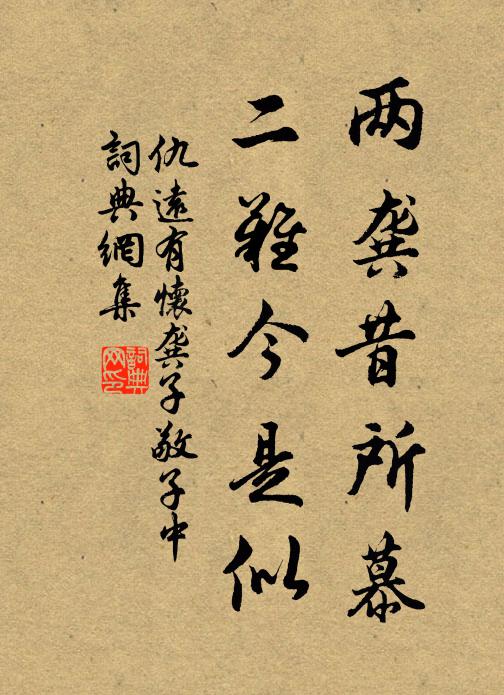 两龚昔所慕
二难今是似
仇遠有懷龚子敬子中
詞典網集
詞典网印